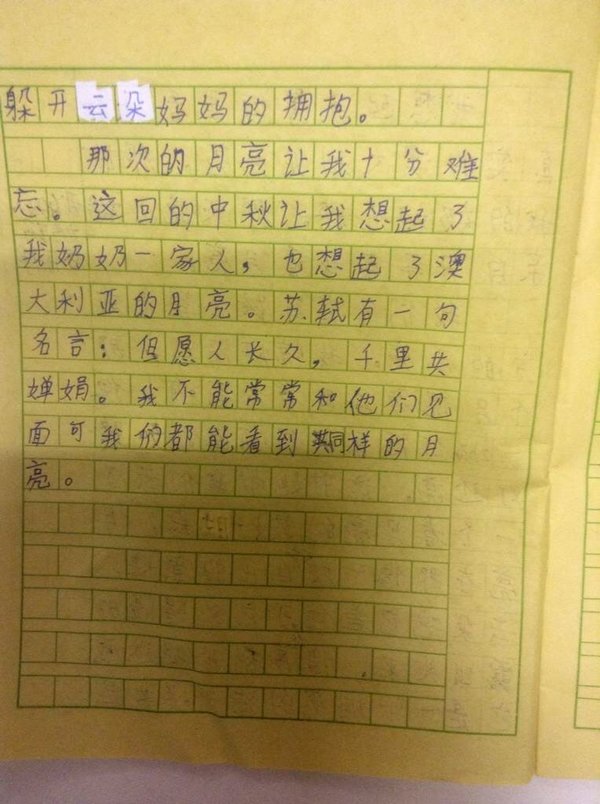 躲开云朵妈妈的拥抱。
那次的月亮让我十分难
忘。这回的中秋让我想起了
我奶奶一家人，也想起了澳
大利亚的月亮。苏轼有一句
名言：但愿人长久，千里共
婵娟。我不能常常和他们见
面可我们都能看到共同样的月
亮。